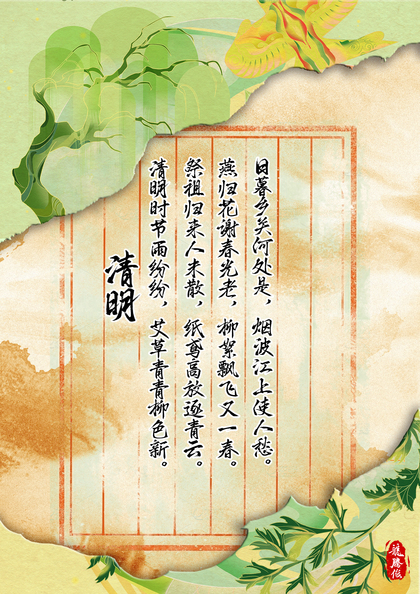 清明
清明时节雨纷纷，艾草青青柳色新。
祭祖归来人未散，纸鸢高放逐青云。
燕归花谢春光老，柳絮飘飞又一春。
日暮乡关河处是，烟波江上使人愁。